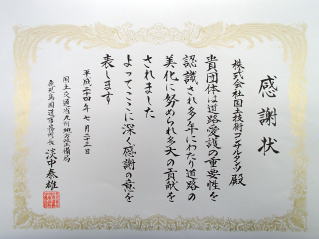 感謝状
株式会社国土技術コンサルタンツ殿
貴団体は道路愛護の重要性を
認識され多年にわたり道路の
美化に努められ多大の貢献を
されました
よってここに深く感謝の意を
表します
平成二十四年七月二十三日
国土交通省九州地方整備局
鹿児島国道事務所長 淡中泰雄